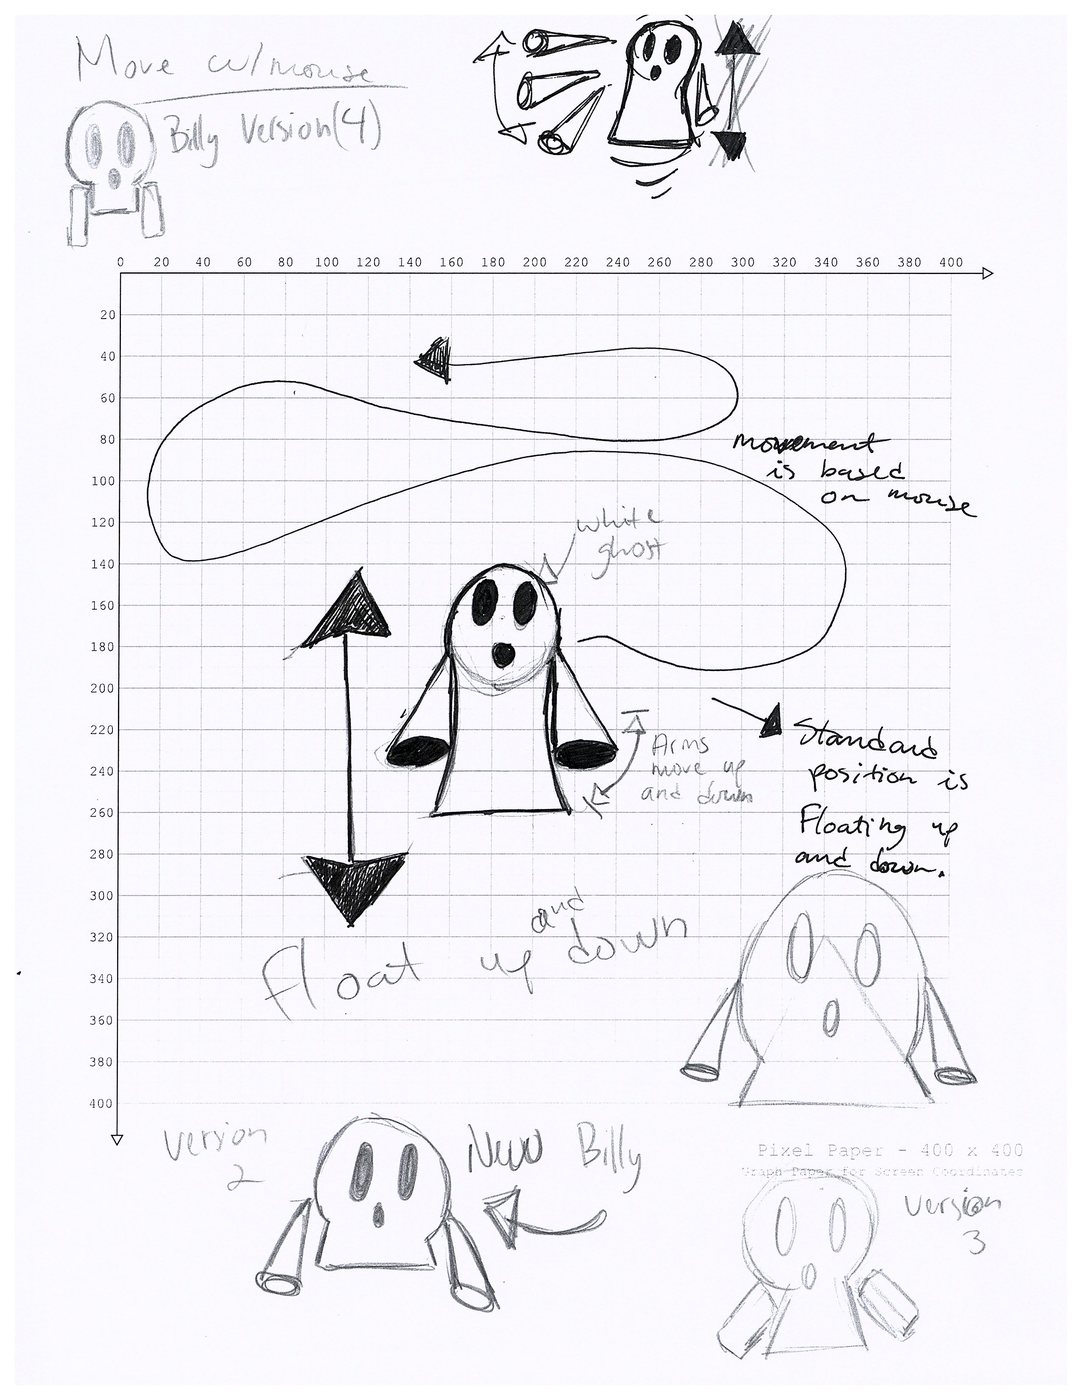 Move w/mouse
Billy Version(4)
0 20 40 60 80 100 120 140 160 180 200 220 240 260 280 300 320 340 360 380 400
20
40
60
80
100
120
140
160
180
200
220
240
260
280
300
320
340
360
380
400
movement
is based
on mouse
White
ghost
Arms
move up
and down
Standard
position is
Floating up
and down.
Float up and down
Version
2
New Billy
Pixel Paper - 400 x 400
Graph Paper for Screen Coordinates
Version
3